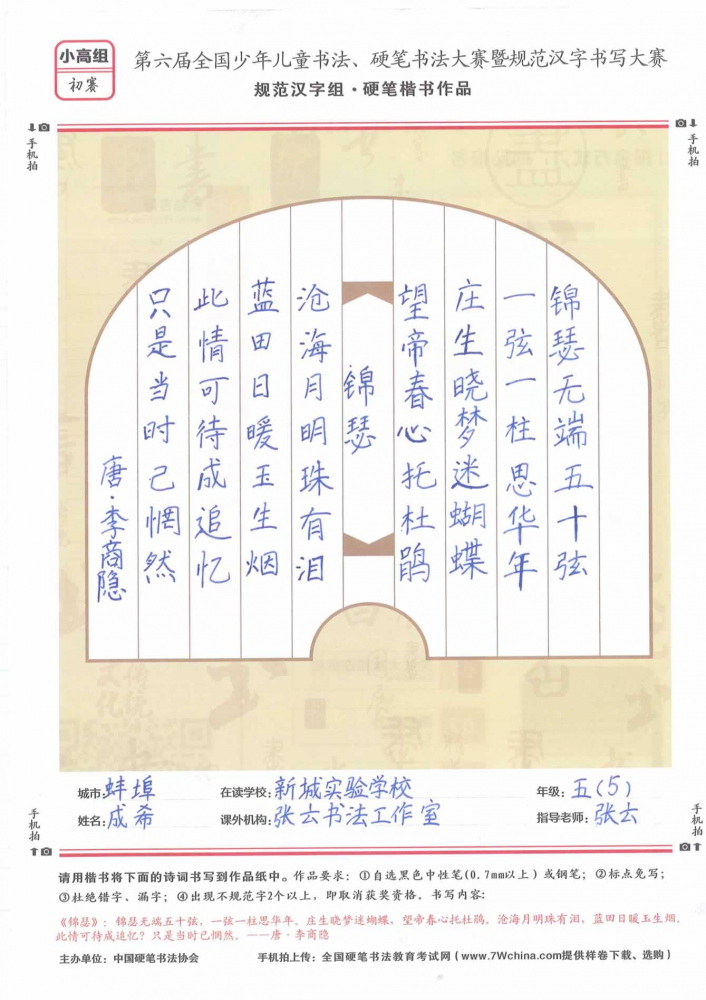 小高组
初赛
第六届全国少年儿童书法、硬笔书法大赛暨规范汉字书写大赛
规范汉字组·硬笔楷书作品
手机拍
手机拍
锦瑟无端五十弦
一弦一柱思华年
庄生晓梦迷蝴蝶
望帝春心托杜鹃
锦瑟
沧海月明珠有泪
蓝田日暖玉生烟
此情可待成追忆
只是当时已惘然
唐·李商隐
城市:蚌埠 在读学校:新城实验学校 年级:五(5)
姓名:成希 课外机构:张云书法工作室 指导老师:张云
手机拍
手机拍
请用楷书将下面的诗词书写到作品纸中。作品要求：①自选黑色中性笔(0.7mm以上)或钢笔；②标点免写；
③杜绝错字、漏字；④出现不规范字2个以上，即取消获奖资格。书写内容：
《锦瑟》：锦瑟无端五十弦，一弦一柱思华年。庄生晓梦迷蝴蝶，望帝春心托杜鹃。沧海月明珠有泪，蓝田日暖玉生烟。
此情可待成追忆？只是当时已惘然。——唐·李商隐
主办单位：中国硬笔书法协会 手机拍上传：全国硬笔书法教育考试网（www.7Wchina.com提供样卷下载、选购）